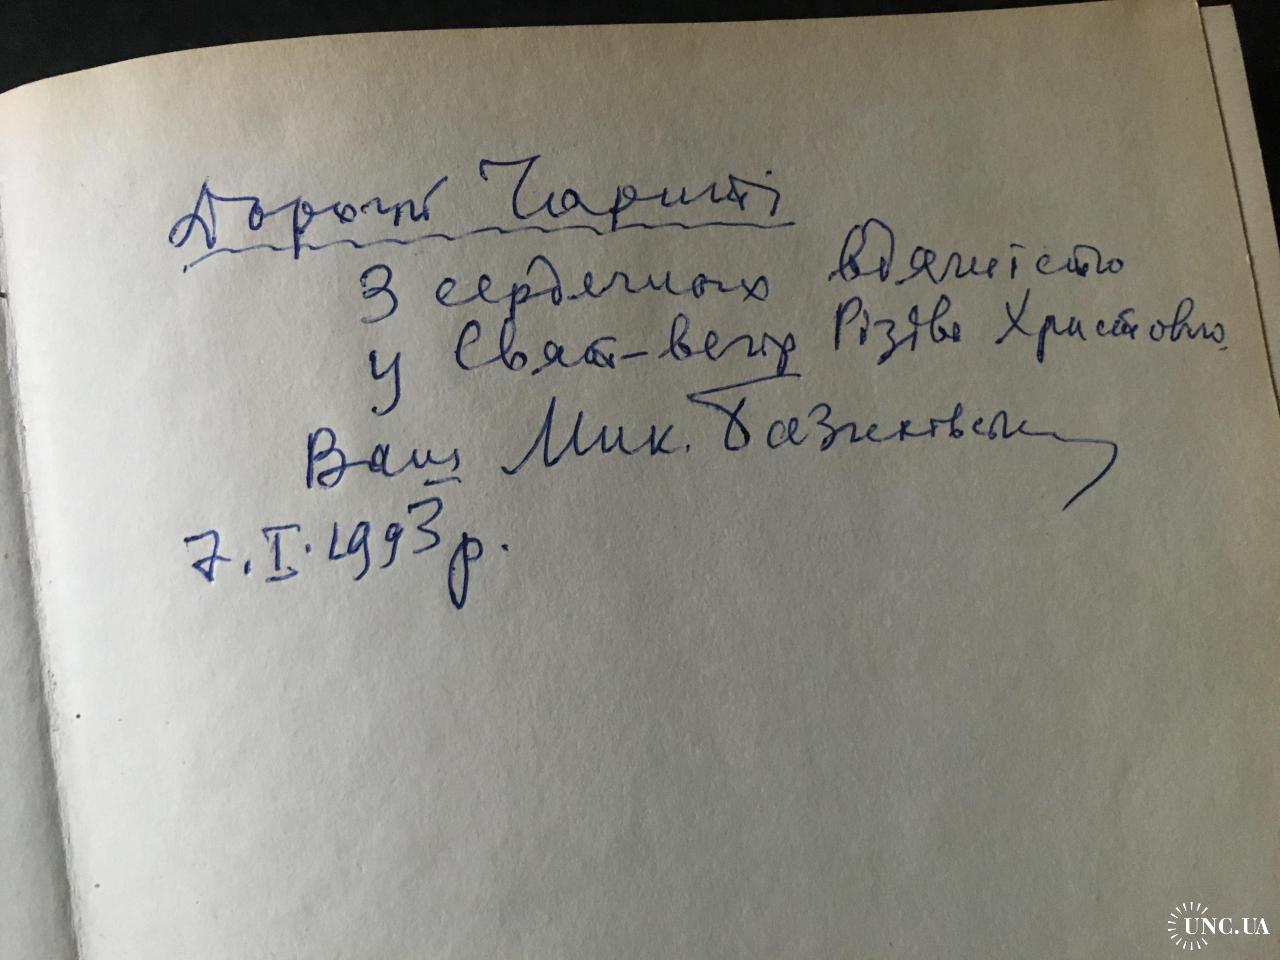 Дорогій Чариті
З сердечною вдячністю
у Свят-вечір Різдва Христового.
Ваш Мик.
7.I.1993 р.
UNC.UA